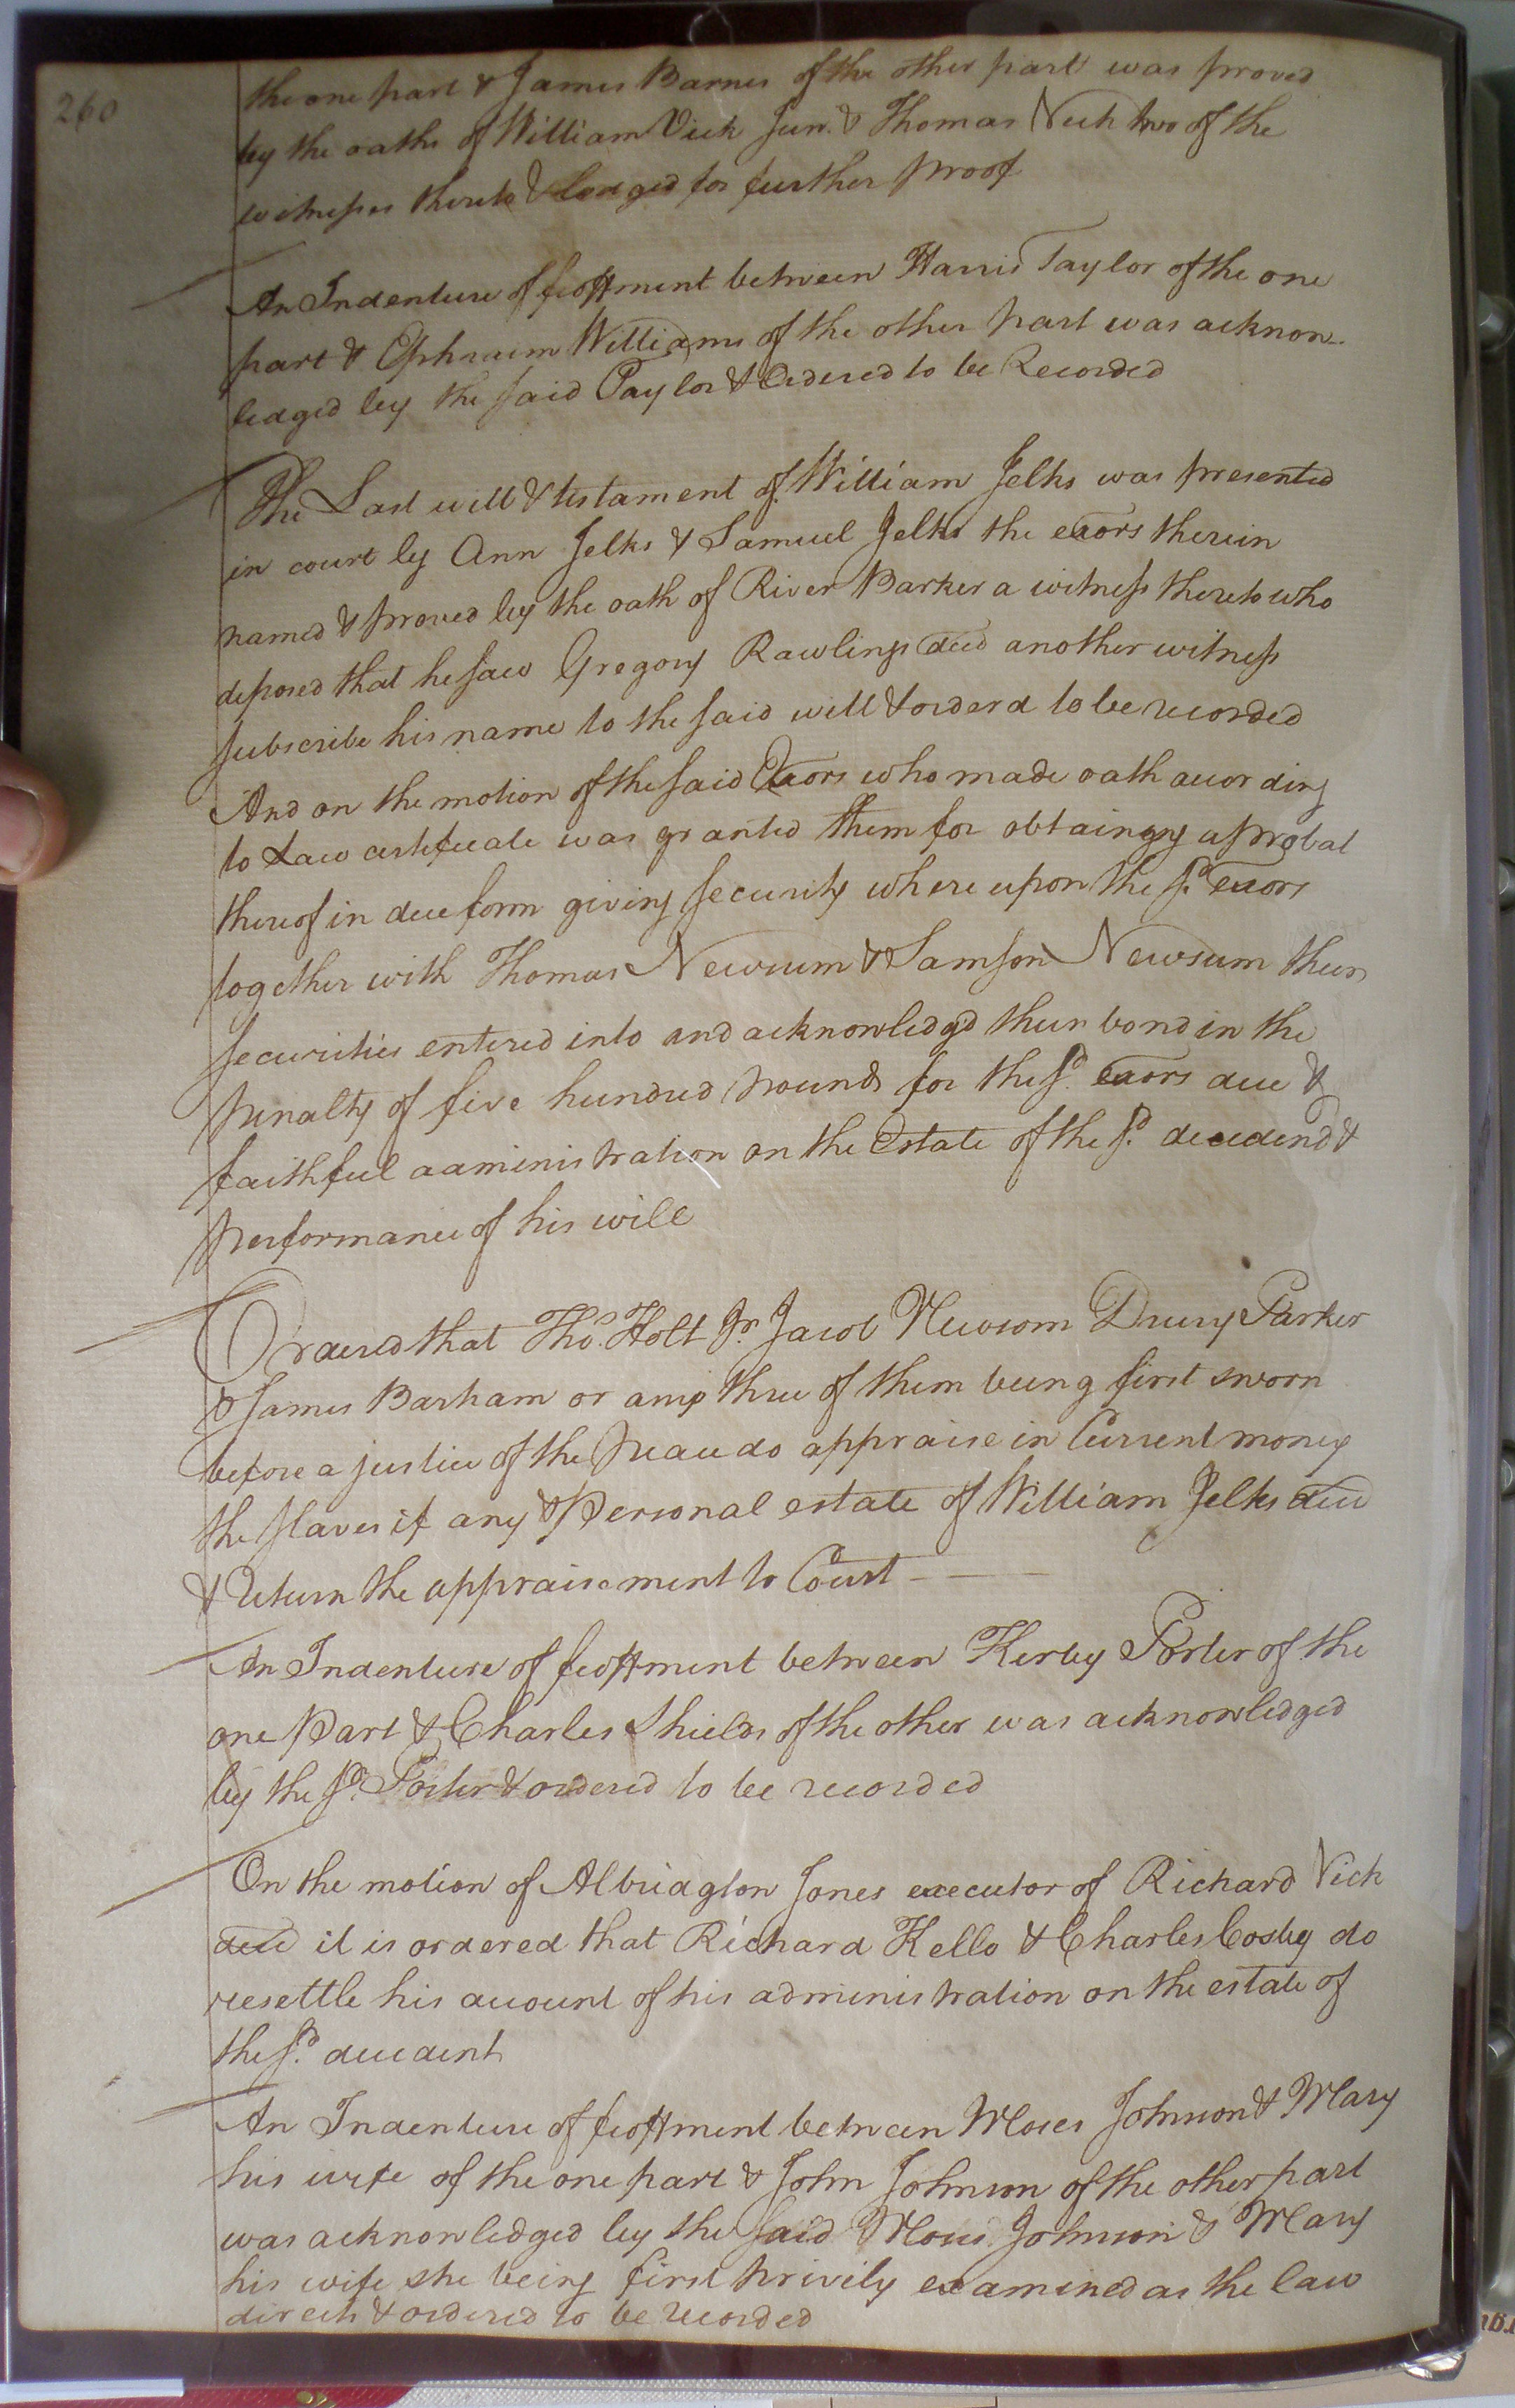 260
the one part & James Barnes of the other part was proved
by the oaths of William Vick Jun. & Thomas Vick two of the
witnesses thereto & lodged for further proof
An Indenture of feoffment between Harris Taylor of the one
part & Ephraim Williams of the other part was acknow-
ledged by the said Taylor & Ordered to be Recorded
The Last will & testament of William Jelks was presented
in court by Ann Jelks & Samuel Jelks the exors therein
named & proved by the oath of River Barker a witness thereto who
deposed that he saw Gregory Rawlings decd another witness
subscribe his name to the said will & orderd to be recorded
And on the motion of the said Exors who made oath according
to Law certificate was granted them for obtaingng a probat
thereof in due form giving security where upon the sd. exors
together with Thomas Newsum & Samson Newsum their
securities entered into and acknowledgd their bond in the
penalty of five hundred pounds for the sd. exors due &
faithful administration on the Estate of the sd. decedend &
performance of his will
Ordered that Thos. Holt Jr. Jacob Newsom Drury Parker
& James Barham or any three of them being first sworn
before a justice of the peace do appraise in Current money
the slaves if any & Personal estate of William Jelks decd
& Return the appraisement to Court - —
An Indenture of feoffment between Kerby Porter of the
one Part & Charles Shields of the other was acknowledged
by the sd. Porter & ordered to be recorded
On the motion of Albridgton Jones executor of Richard Vick
decd it is ordered that Richard Kello & Charles Cosby do
resettle his account of his administration on the estate of
the sd. decedent
An Indenture of feoffment between Moses Johnson & Mary
his wife of the one part & John Johnson of the other part
was acknowledged by the said Moses Johnson & Mary
his wife she being first privily examined as the law
directs & ordered to be recorded